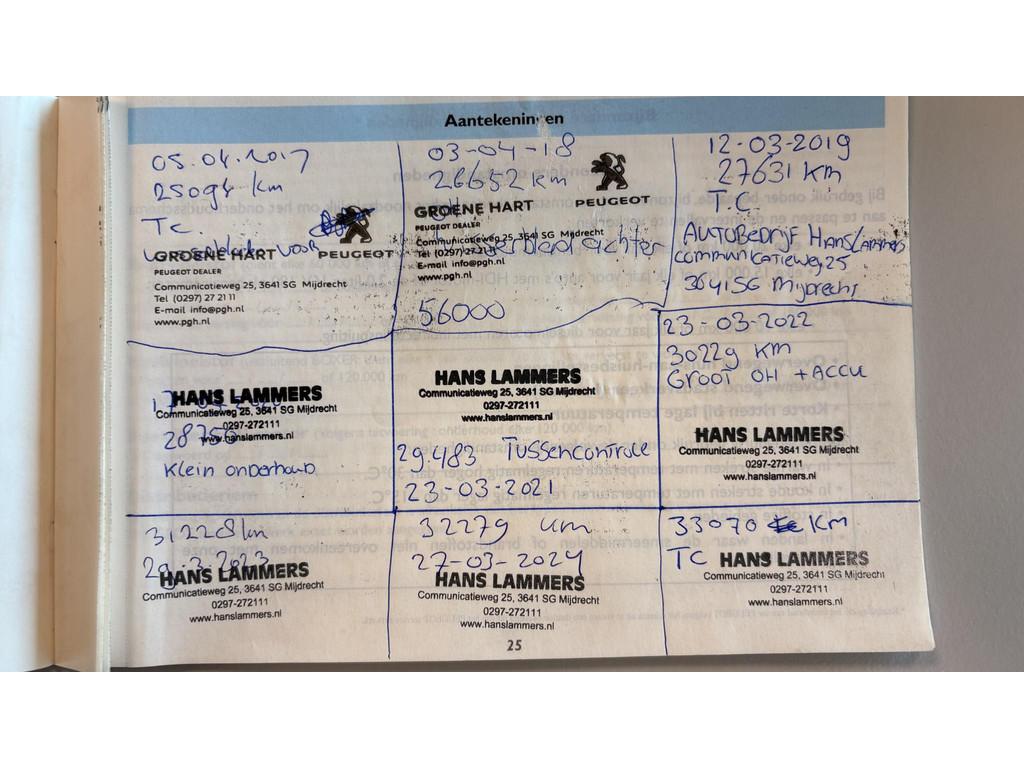 Aantekeningen
05.04.2017
25094 km
TC.
VOOR
GROENE HART
PEUGEOT
PEUGEOT DEALER
Communicatieweg 25, 3641 SG Mijdrecht
Tel (0297) 27 21 11
E-mail info@pgh.nl
www.pgh.nl
03-04-18
26652 km
GROENE HART
PEUGEOT
PEUGEOT DEALER
Communicatieweg 25, 3641 SG Mijdrecht
Tel (0297) 27 21 11
achter
E-mail info@pgh.nl
www.pgh.nl
56000
12-03-2019
27631 km
T.C
AUTOBEDRIJF HANS LAMMERS
Communicatieweg 25
3641 SG Mijdrecht
HANS LAMMERS
Communicatieweg 25, 3641 SG Mijdrecht
0297-272111
www.hanslammers.nl
28750
Klein onderhoud
HANS LAMMERS
Communicatieweg 25, 3641 SG Mijdrecht
0297-272111
www.hanslammers.nl
29.483 Tussencontrole
23-03-2021
23-03-2022
30229 KM
GROOT OH + ACCU
HANS LAMMERS
Communicatieweg 25, 3641 SG Mijdrecht
0297-272111
www.hanslammers.nl
31228 km
29.3.2023
HANS LAMMERS
Communicatieweg 25, 3641 SG Mijdrecht
0297-272111
www.hanslammers.nl
32279 km
27-03-2024
HANS LAMMERS
Communicatieweg 25, 3641 SG Mijdrecht
0297-272111
www.hanslammers.nl
33070 KM
TC HANS LAMMERS
Communicatieweg 25, 3641 SG Mijdrecht
0297-272111
www.hanslammers.nl
25